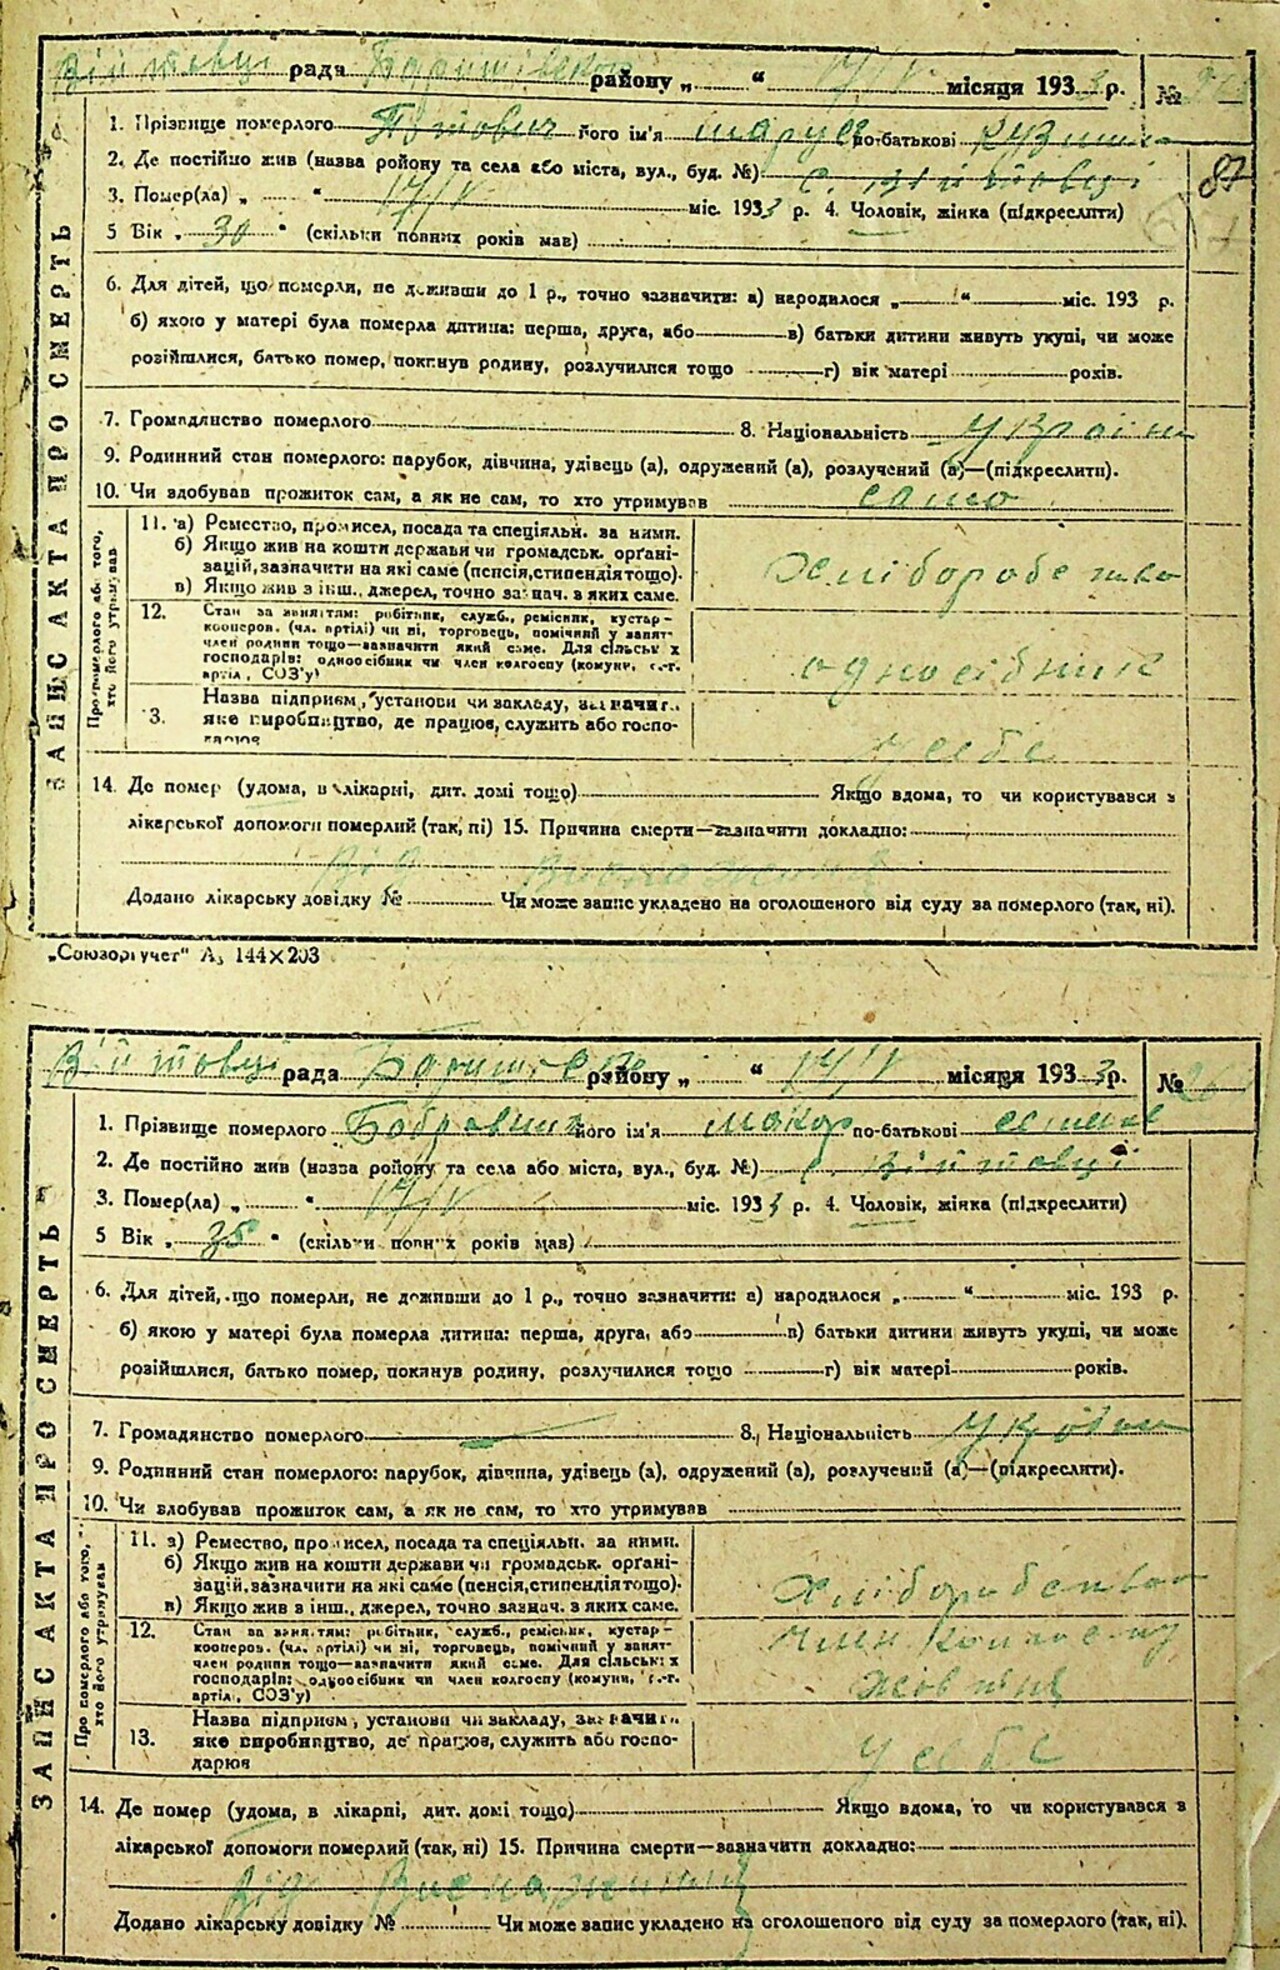 Війтовці рада Баришівського району „ “ 17/V місяця 1933 р. №
ЗАПИС АКТА ПРО СМЕРТЬ
1. Прізвище померлого його ім'я по-батькові
87
2. Де постійно жив (назва району та села або міста, вул., буд. №) с. Війтовці
3. Помер(ла) „ “ 17/V міс. 1933 р. 4. Чоловік, жінка (підкреслити)
5 Вік „ 30 “ (скільки повних років мав)
6. Для дітей, що померли, не доживши до 1 р., точно зазначити: а) народилося „ “ міс. 193 р.
б) якою у матері була померла дитина: перша, друга, або в) батьки дитини живуть укупі, чи може
розійшлися, батько помер, покинув родину, розлучилися тощо г) вік матері років.
7. Громадянство померлого 8. Національність україн
9. Родинний стан померлого: парубок, дівчина, удівець (а), одружений (а), розлучений (а)—(підкреслити).
10. Чи здобував прожиток сам, а як не сам, то хто утримував само
Про померлого або того, хто його утримував
11. а) Ремество, промисел, посада та спеціяльн. за ними.
б) Якщо жив на кошти держави чи громадськ. органі-
зацій, зазначити на які саме (пенсія, стипендія тощо).
в) Якщо жив з інш., джерел, точно зазнач. з яких саме.
12. Стан за заняттям: робітник, служб., ремісник, кустар-
кооперов. (чл. артілі) чи ні, торговець, помічний у занят-
член родини тощо—зазначити який саме. Для сільськ х
господарів: одноосібник чи член колгоспу (комуни, с.-г.
артіл, СОЗ'у)
одноосібник
3. Назва підприєм, установи чи закладу, зазначит.
яке виробництво, де працює, служить або госпо-
дарює
у себе
14. Де помер (удома, в лікарні, дит. домі тощо) Якщо вдома, то чи користувався з
лікарської допомоги померлий (так, ні) 15. Причина смерти—зазначити докладно:
Від Виснаження
Додано лікарську довідку № Чи може запис укладено на оголошеного від суду за померлого (так, ні).
„Союзоргучет“ А₅ 144×203
Війтовці рада Баришівськ району „ “ 17/V місяця 1933 р. №
ЗАПИС АКТА ПРО СМЕРТЬ
1. Прізвище померлого його ім'я Макар по-батькові
2. Де постійно жив (назва району та села або міста, вул., буд. №) с. Війтовці
3. Помер(ла) „ “ 17/V міс. 1933 р. 4. Чоловік, жінка (підкреслити)
5 Вік „ 35 “ (скільки повних років мав)
6. Для дітей, що померли, не доживши до 1 р., точно зазначити: а) народилося „ “ міс. 193 р.
б) якою у матері була померла дитина: перша, друга, або в) батьки дитини живуть укупі, чи може
розійшлися, батько помер, покинув родину, розлучилися тощо г) вік матері років.
7. Громадянство померлого 8. Національність україн
9. Родинний стан померлого: парубок, дівчина, удівець (а), одружений (а), розлучений (а)—(підкреслити).
10. Чи здобував прожиток сам, а як не сам, то хто утримував
Про померлого або того, хто його утримував
11. а) Ремество, промисел, посада та спеціяльн. за ними.
б) Якщо жив на кошти держави чи громадськ. органі-
зацій, зазначити на які саме (пенсія, стипендія тощо).
в) Якщо жив з інш., джерел, точно зазнач. з яких саме.
12. Стан за заняттям: робітник, служб., ремісник, кустар-
кооперов. (чл. артілі) чи ні, торговець, помічний у занят-
член родини тощо—зазначити який саме. Для сільськ х
господарів: одноосібник чи член колгоспу (комуни, с.-г.
артіл, СОЗ'у)
член колгоспу
13. Назва підприєм, установи чи закладу, зазначит.
яке виробництво, де працює, служить або госпо-
дарює
у себе
14. Де помер (удома, в лікарні, дит. домі тощо) Якщо вдома, то чи користувався з
лікарської допомоги померлий (так, ні) 15. Причина смерти—зазначити докладно:
Від Виснаження
Додано лікарську довідку № Чи може запис укладено на оголошеного від суду за померлого (так, ні).